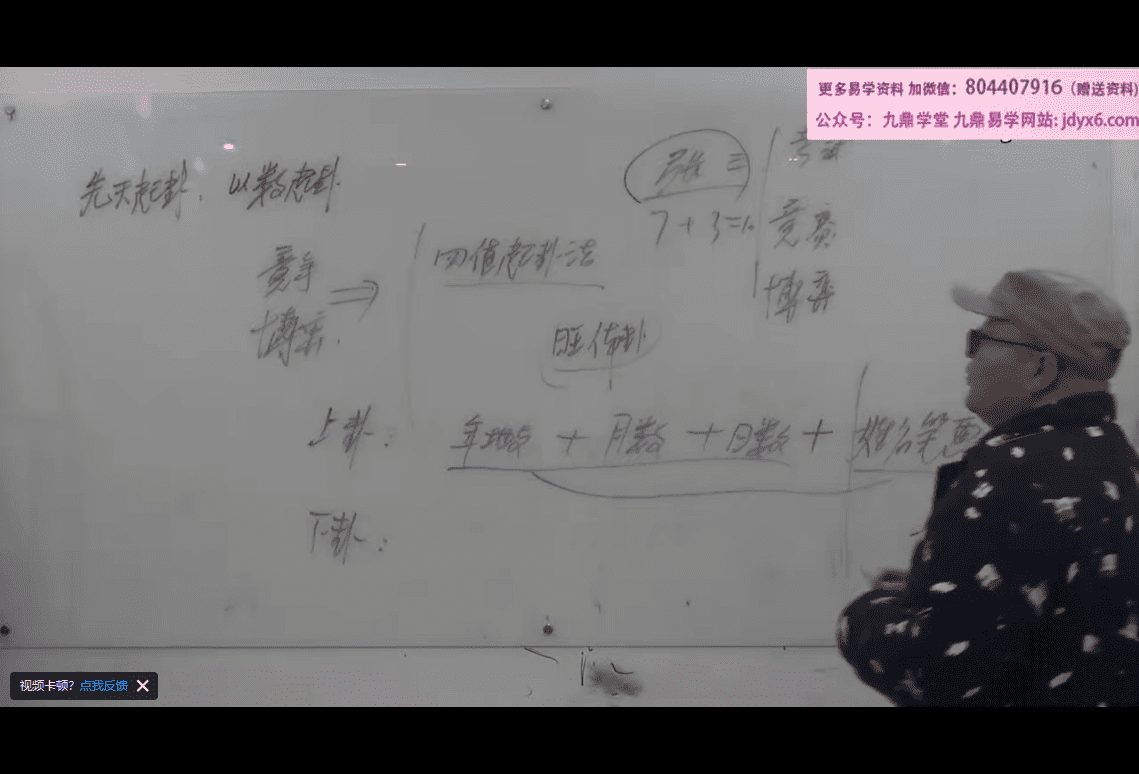 更多易学资料 加微信：804407916（赠送资料）
公众号：九鼎学堂 九鼎易学网站: jdyx6.com
先天起卦. 以数起卦.
张三
7+3=10
竞赛
博弈
竞争
博弈.
四值起卦法
旺体卦
上卦： 年地数 + 月数 + 日数 + 姓名笔画
下卦：
视频卡顿？点我反馈